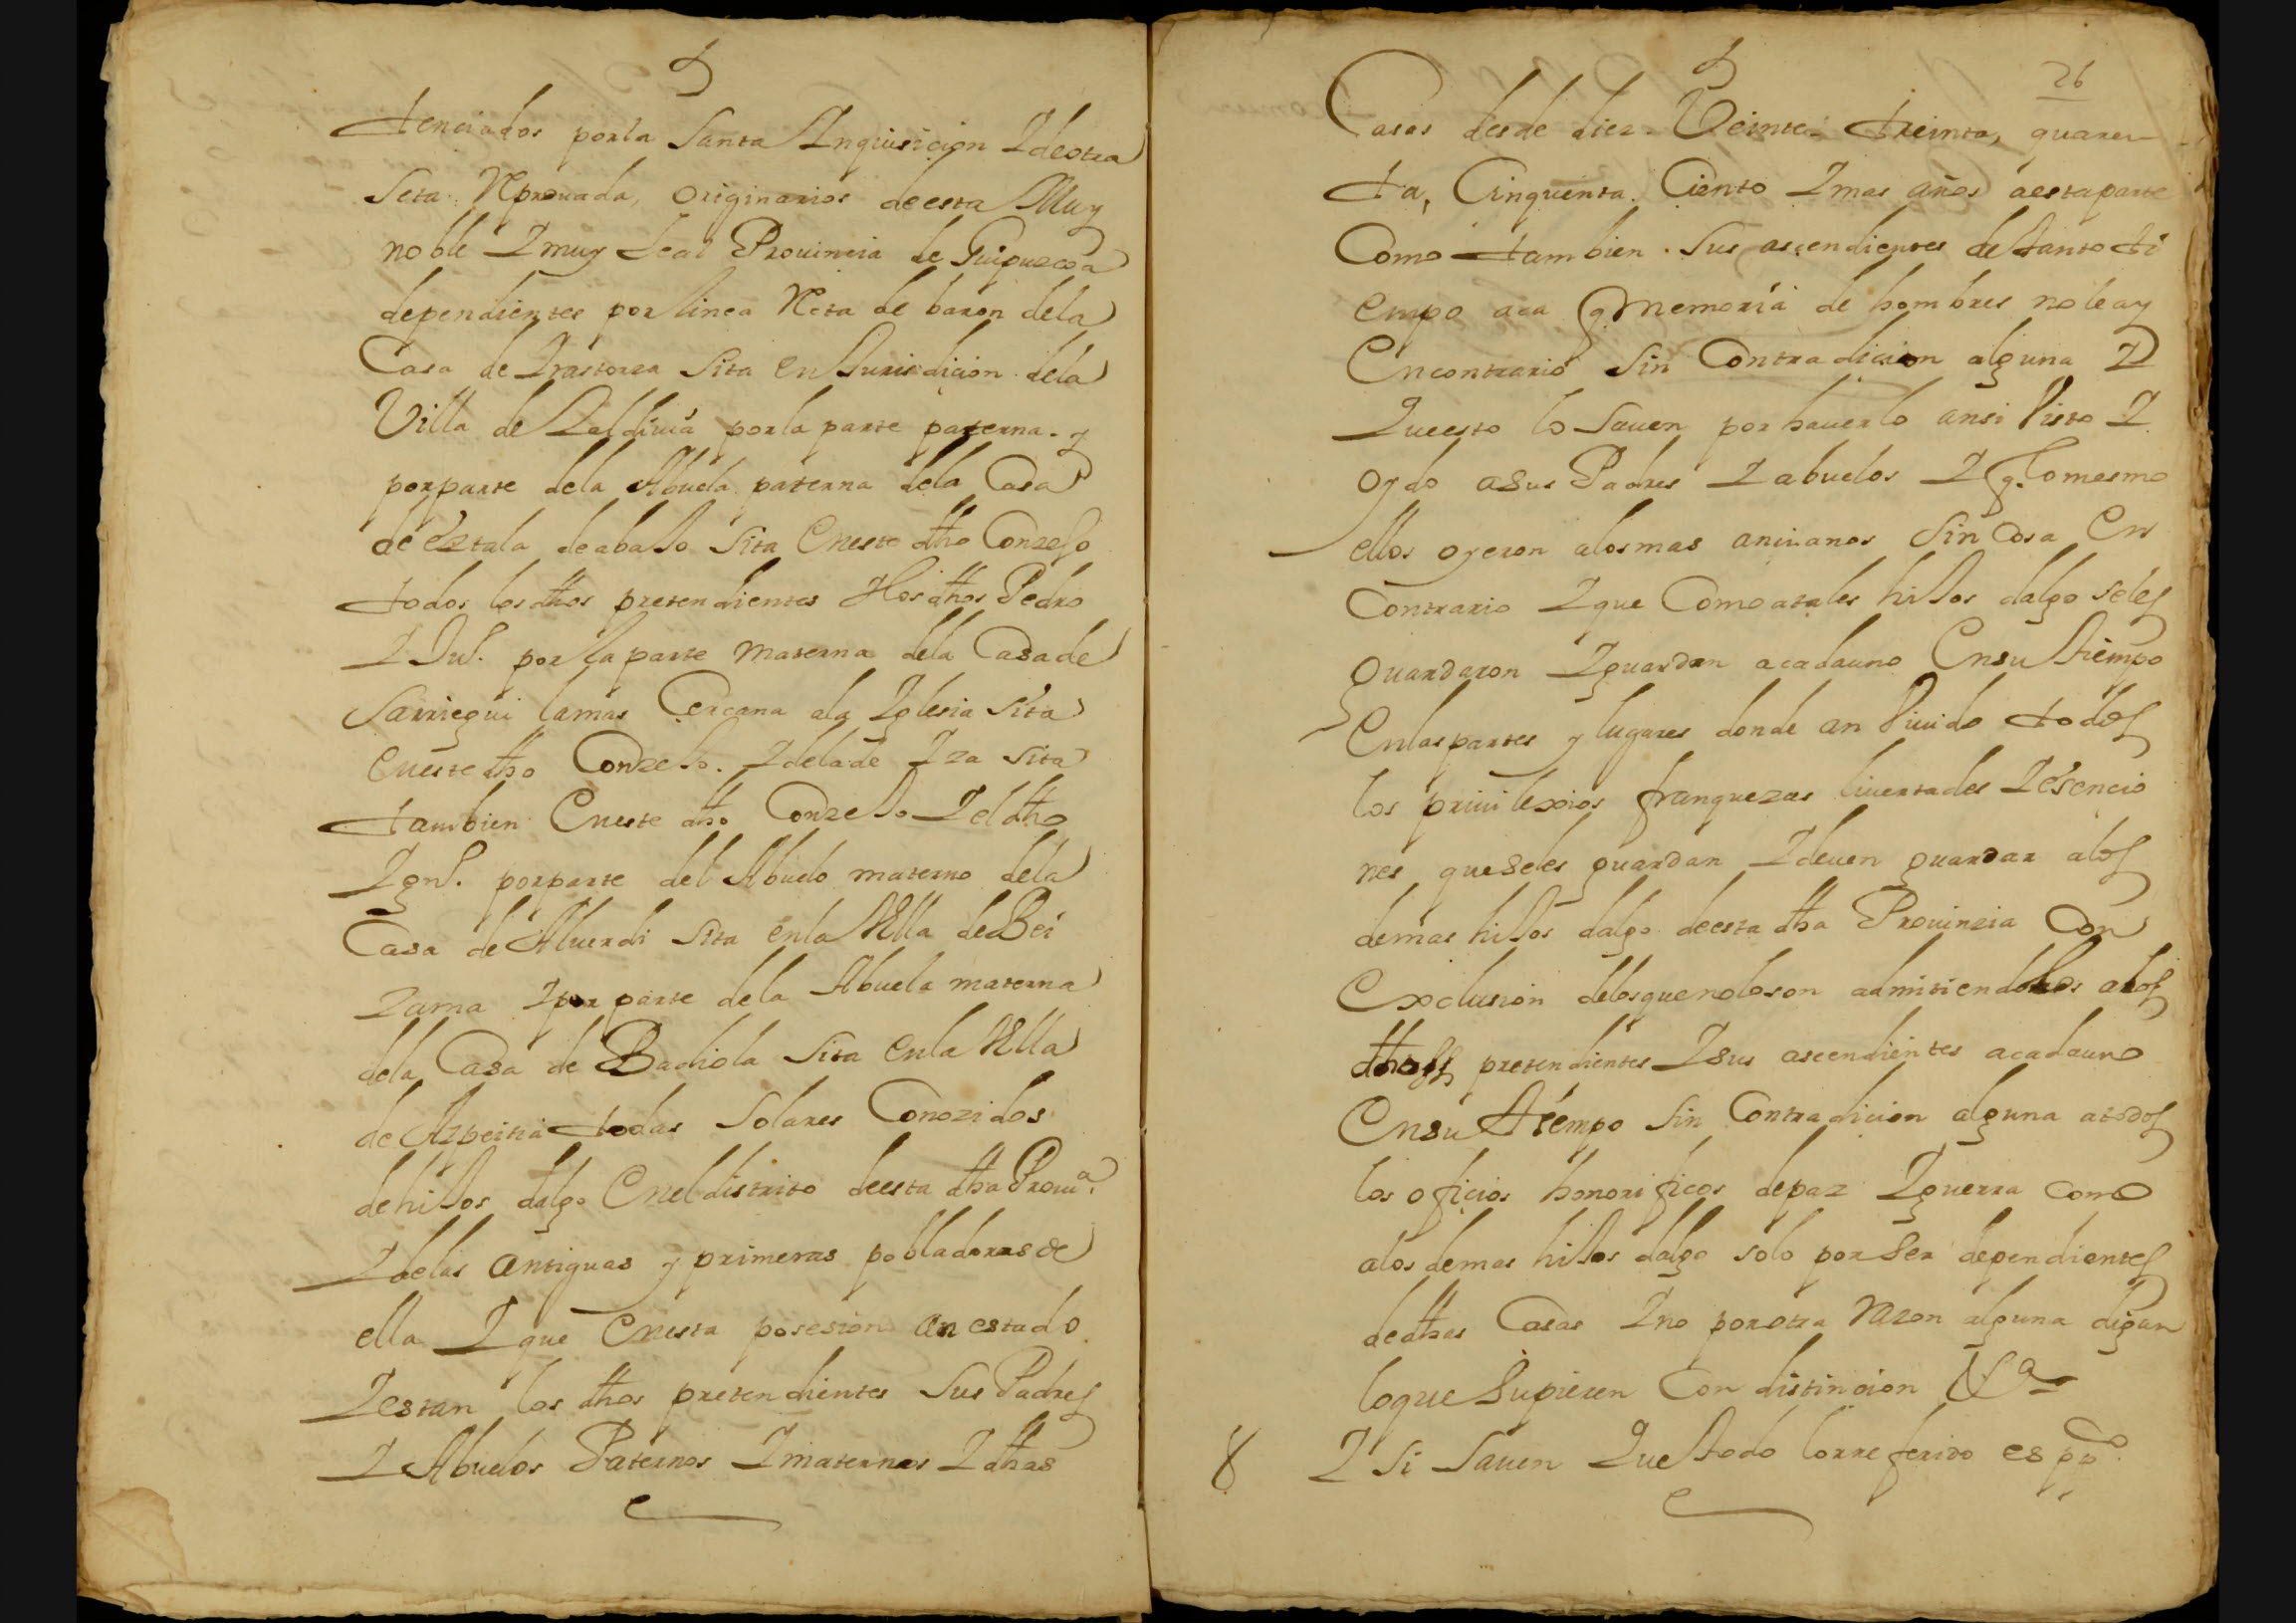 tenciados por la Santa Inquisicion Y de otra
Seta Reprouada, originarios de esta Muy
noble Y muy Leal Prouincia de Guipuzcoa
dependientes por linea Reta de baron de la
Casa de Yrastorza Sita en Jurisdicion de la
Villa de Zaldiuia por la parte paterna y
por parte de la Abuela paterna de la Casa
de eztala de abaJo Sita en este dho ConzeJo
todos los dhos pretendientes Y los dhos Pedro
Y Juº. por la parte materna de la Casa de
Sarriegui la mas Cercana a la Yglesia Sita
en este dho ConzeJo. Y de la de Yza Sita
tambien en este dho ConzeJo Y el dho
Ygnº. por parte del Abuelo materno de la
Casa de Aluerdi Sita en la Villa de Bei
zama Y por parte de la Abuela materna
de la Casa de Badiola Sita en la Villa
de Azpeitia todas Solares Conozidos
de hiJos dalgo en el distrito de esta dha Prouª.
Y de las antiguas y primeras pobladoras de
ella Y que en esta posesion an estado
Y estan los dhos pretendientes Sus Padres
Y Abuelos Paternos Y maternos Y dhas
26
Casas desde diez. Veinte. treinta, quaren
ta, Cinquenta. Ciento Y mas años a esta parte
Como tambien. Sus ascendientes de tanto ti
empo aca q Memoria de hombres no le ay
en contrario Sin Contradicion alguna Y
Que esto lo Sauen por hauerlo ansi Visto Y
oydo a Sus Padres Y abuelos Y q. lo mesmo
ellos oyeron a los mas ancianos Sin Cosa en
Contrario Y que Como a tales hiJos dalgo se les
guardaron Y guardan a cada uno en su tiempo
en las partes y lugares donde an Viuido todos
los priuilexios franquezas liuertades Y esencio
nes que Se les guardan Y deuen guardar a los
demas hiJos dalgo de esta dha Prouinzia Con
exclusion de los que no lo son admitiendolos a los
dhos pretendientes Y sus ascendientes a cada uno
en su tiempo Sin Contradicion alguna a todos
los oficios honorificos de paz Y guerra como
a los demas hiJos dalgo solo por Ser dependientes
de dhas Casas Y no por otra Razon alguna digan
lo que Supieren Con distincion &ª
8 Y Si Sauen Que todo lo rreferido es ppº